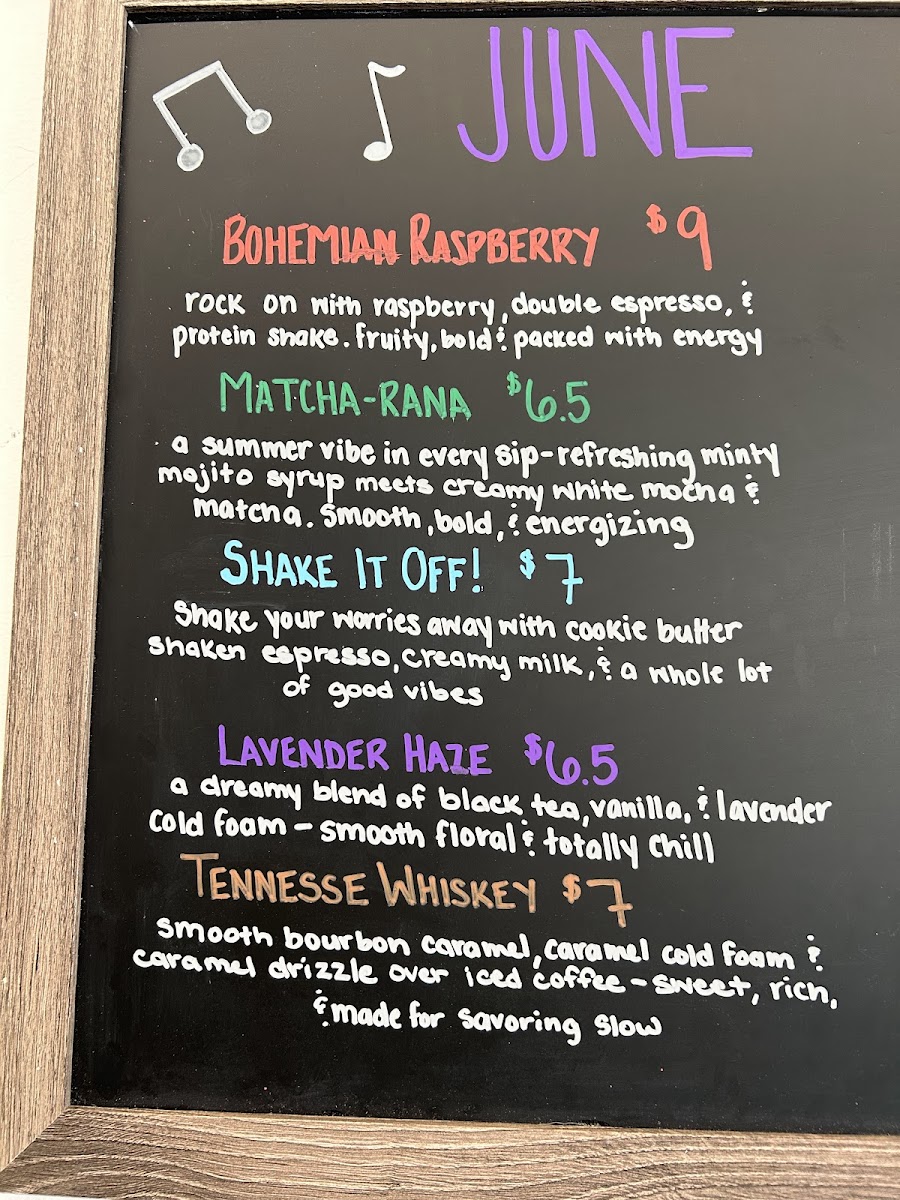 JUNE
BOHEMIAN RASPBERRY $9
rock on with raspberry, double espresso, &
protein shake. fruity, bold & packed with energy
MATCHA-RANA $6.5
a summer vibe in every sip-refreshing minty
mojito syrup meets creamy white mocha &
matcha. Smooth, bold, & energizing
SHAKE IT OFF! $7
Shake your worries away with cookie butter
shaken espresso, creamy milk, & a whole lot
of good vibes
LAVENDER HAZE $6.5
a dreamy blend of black tea, vanilla, & lavender
cold foam - smooth floral & totally chill
TENNESSE WHISKEY $7
smooth bourbon caramel, caramel cold foam &
caramel drizzle over iced coffee - sweet, rich,
& made for savoring slow